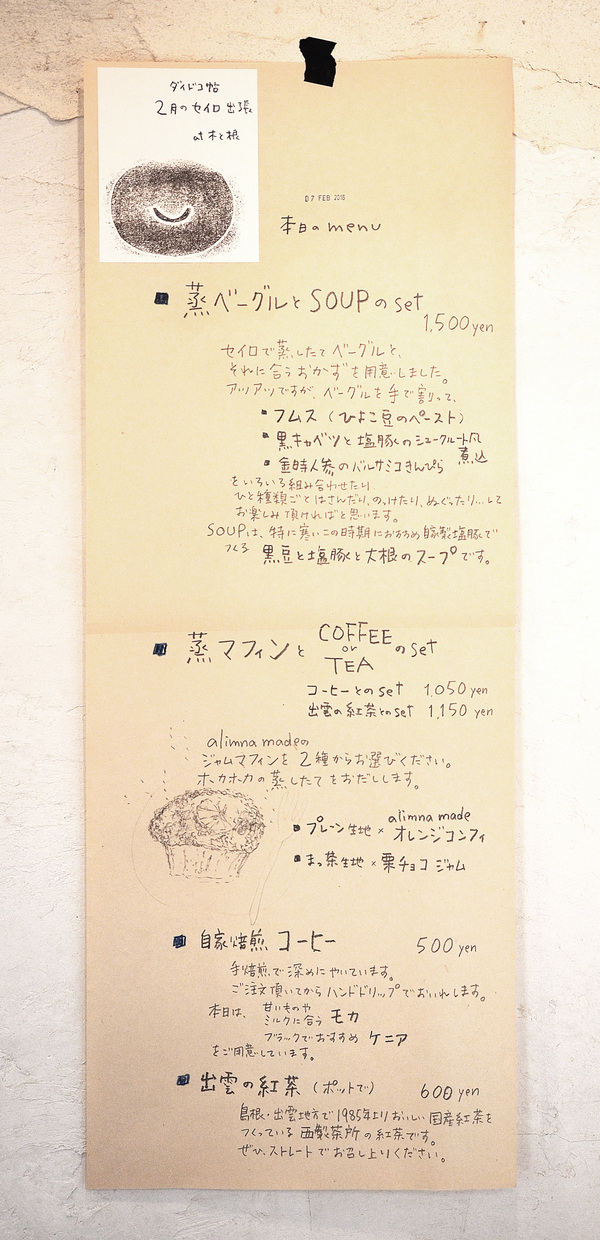 ダイドコ帖
2月のセイロ出張
at 木と根
07 FEB 2018
本日の menu
蒸ベーグルと SOUPの set
1,500 yen
セイロで蒸したてベーグルと、
それに合うおかずを用意しました。
アツアツですが、ベーグルを手で割って、
フムス (ひよこ豆のペースト)
黒キャベツと塩豚のシュークルート風
煮込
金時人参のバルサミコきんぴら
をいろいろ組み合わせたり
ひと種類ごとはさんだり、のっけたり、ぬぐったり…して
お楽しみ頂ければと思います。
SOUPは、特に寒いこの時期におすすめ自家製塩豚で
つくる 黒豆と塩豚と大根のスープです。
蒸マフィンと COFFEE or TEA の set
コーヒーとの set 1,050 yen
出雲の紅茶との set 1,150 yen
alimna madeの
ジャムマフィンを 2種からお選びください。
ホカホカの蒸したてをおだしします。
プレーン生地 × alimna made オレンジコンフィ
まっ茶生地 × 栗チョコ ジャム
自家焙煎 コーヒー 500 yen
手焙煎で深めにやいています。
ご注文頂いてからハンドドリップでおいれします。
本日は、甘いものやミルクに合う モカ
ブラックでおすすめ ケニア
をご用意しています。
出雲の紅茶 (ポットで) 600 yen
島根・出雲地方で1985年よりおいしい国産紅茶を
つくっている 西製茶所の紅茶です。
ぜひ、ストレートでお召し上りください。